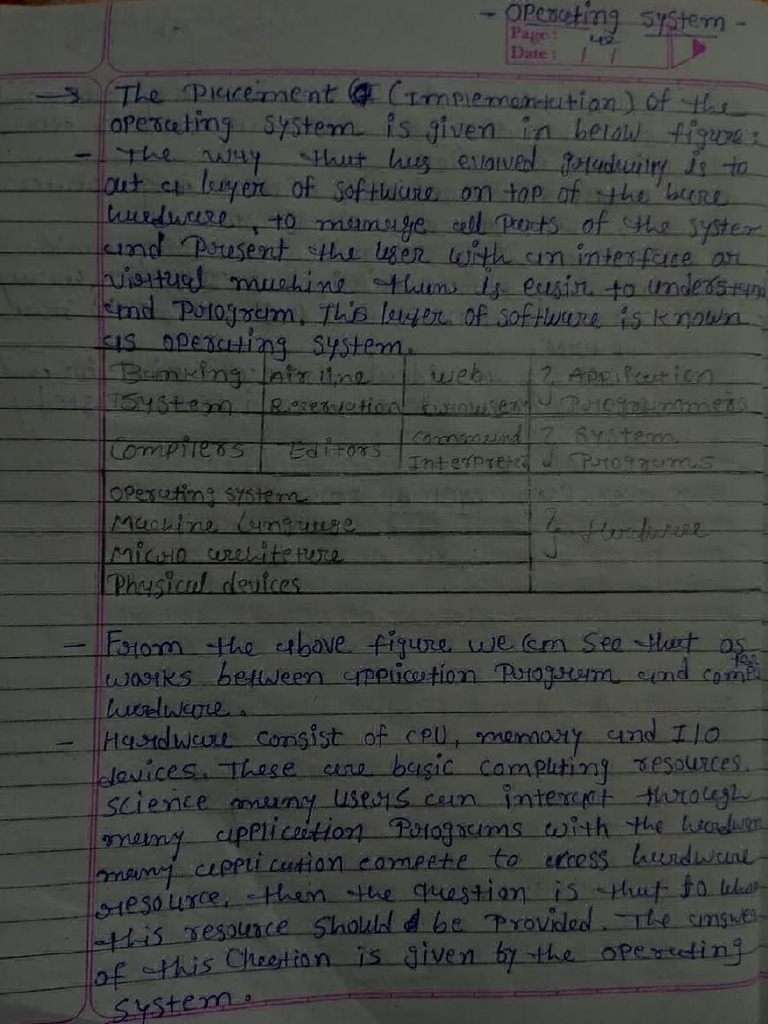 - Operating System -
Page: 42
Date: / /
→ The Placement (Implementation) of the
operating system is given in below figure:
- The way that has evolved gradually is to
out a layer of software on top of the bare
hardware, to manage all parts of the system
and Present the user with an interface or
virtual machine than is easir to understan
and Program. This layer of software is known
as operating system.
Banking Air line web } Application
System Reservation browser Programmers
Compilers Editors command } System
Interpreter Programs
operating system
Machine Language } Hardware
Micro architeture
Physical devices
- From the above figure we can see that os
works between application Program and computer
hardware.
- Hardware consist of CPU, memory and I/O
devices. These are basic computing resources.
science many users can intercpt through
many application Programs with the hardware
many application compete to access hardware
resource, then the question is that to whom
this resource should be Provided. The answer
of this Question is given by the operating
System.